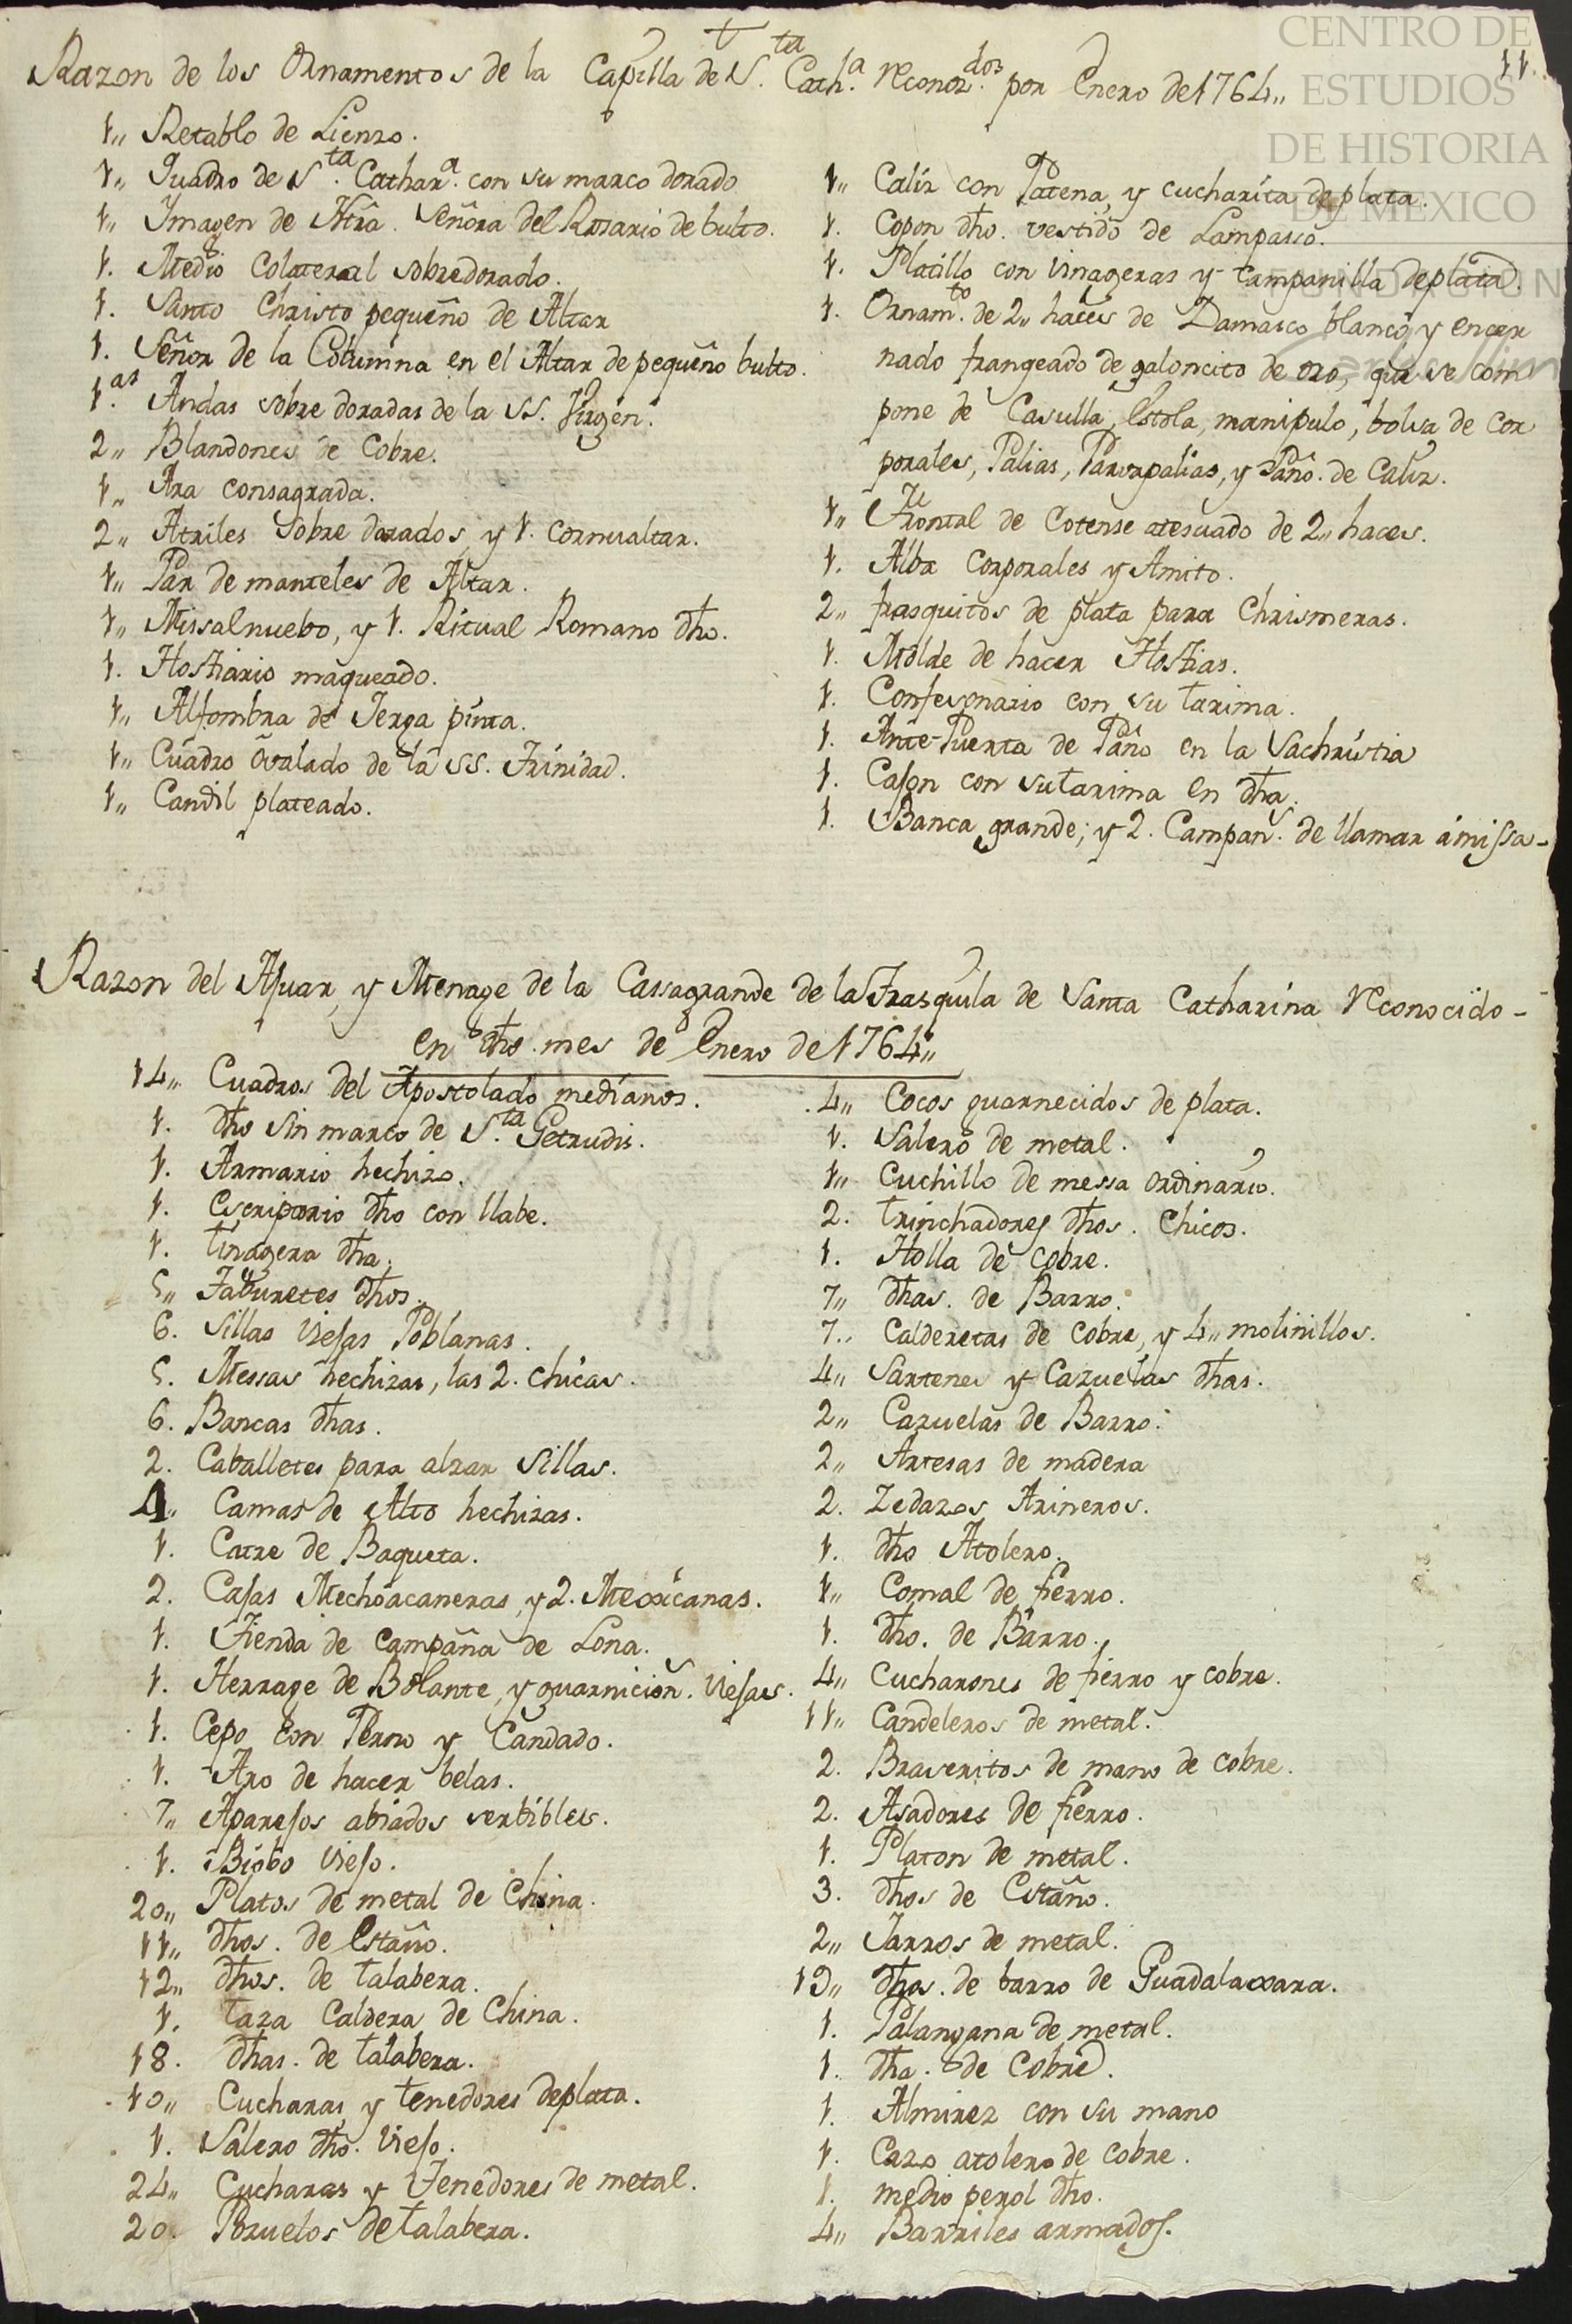 Razon de los Ornamentos de la Capilla de S.ta Cath.a reconoz.dos por Enero de 1764,,
11.
CENTRO DE
ESTUDIOS
DE HISTORIA
DE MÉXICO
FUNDACIÓN
1,, Retablo de Lienzo.
1,, Quadro de S.ta Cathar.a con su marco dorado
1,, Imagen de Ntrâ. Señora del Rosario de bulto.
1. Medio Colateral sobredorado.
1. Santo Christo pequeño de Altar
1. Señor de la Columna en el Altar de pequeño bulto.
1.as Andas sobre doradas de la SS. Virgen.
2,, Blandones de Cobre.
1,, Ara consagrada.
2,, Atriles sobre dorados, y 1. cornualtar.
1,, Par de manteles de Altar.
1,, Missal nuebo, y 1. Ritual Romano dho.
1. Hostiario maqueado.
1,, Alfombra de Jerga pinta.
1,, Cuadro Ovalado de la SS. Trinidad.
1,, Candil plateado.
1,, Caliz con Patena, y cucharita de plata.
1. Copon dho. vestido de Lampasso.
1. Platillo con vinageras y campanilla de plata.
1. Ornam.to de 2,, haces de Damasco blanco y encar
nado frangeado de galoncito de oro, que se com
pone de Casulla, Estola, manipulo, bolsa de Cor
porales, Palias, Paño. de Caliz.
1,, Frontal de Cotense atesuado de 2,, haces.
1. Alba Corporales y Amito.
2,, frasquitos de plata para Chrismeras.
1. Molde de hacer Hostias.
1. Confesonario con su tarima.
1. Ante-Puerta de Paño en la Sachristia
1. Cajon con su tarima en dha.
1. Banca grande; y 2. Campan.s de llamar á missa-
Razon del Ajuar, y Menage de la Cassagrande de la Trasquila de Santa Catharina reconocido-
en dho mes de Enero de 1764,,
14,, Cuadros del Apostolado medianos.
1. dho sin marco de S.ta Getrudis.
1. Armario hechizo.
1. Escriptorio dho con llabe.
1. tinagera dha.
5,, Taburetes dhos.
6. Sillas Viejas Poblanas.
5. Messas hechizas, las 2. chicas.
6. Bancas dhas.
2. Caballetes para alzar Sillas.
4. Camas de Alto hechizas.
1. Catre de Baqueta.
2. Cajas Mechoacaneras, y 2. Mexicanas.
1. Tienda de campaña de Lona.
1. Herrage de Bolante, y guarnicion. Viejas.
1. Cepo con Perno y Candado.
1. Aro de hacer belas.
7,, Aparejos abiados serbibles.
1. Biobo Viejo.
20,, Platos de metal de China.
11,, dhos. de Estaño.
12,, dhos. de talabera.
1. taza Caldera de China.
18. dhas. de talabera.
10,, Cucharas, y tenedores de plata.
1. Salero dho. Viejo.
24,, Cucharas y Tenedores de metal.
20. Pozuelos de talabera.
4,, Cocos guarnecidos de plata.
1. Salero de metal.
1,, Cuchillo de messa ordinario.
2. trinchadores dhos. chicos.
1. Holla de cobre.
7,, dhas. de Barro.
7,, Calderetas de cobre, y 4,, molinillos.
4,, Sartenes y Cazuelas dhas.
2,, Cazuelas de Barro.
2,, Artesas de madera
2. Zedazos Arineros.
1. dho Atolero.
1,, Comal de fierro.
1. dho. de Barro.
4,, Cucharones de fierro y cobre.
11,, Candeleros de metal.
2. Braseritos de mano de cobre.
2. Asadores de fierro.
1. Platon de metal.
3. dhos de Estaño.
2,, Jarros de metal.
19,, dhos. de barro de Guadalaxara.
1. Palangana de metal.
1. dha. de Cobre.
1. Almirez con su mano
1. Cazo atolero de cobre.
1. medio perol dho.
4,, Barriles armados.